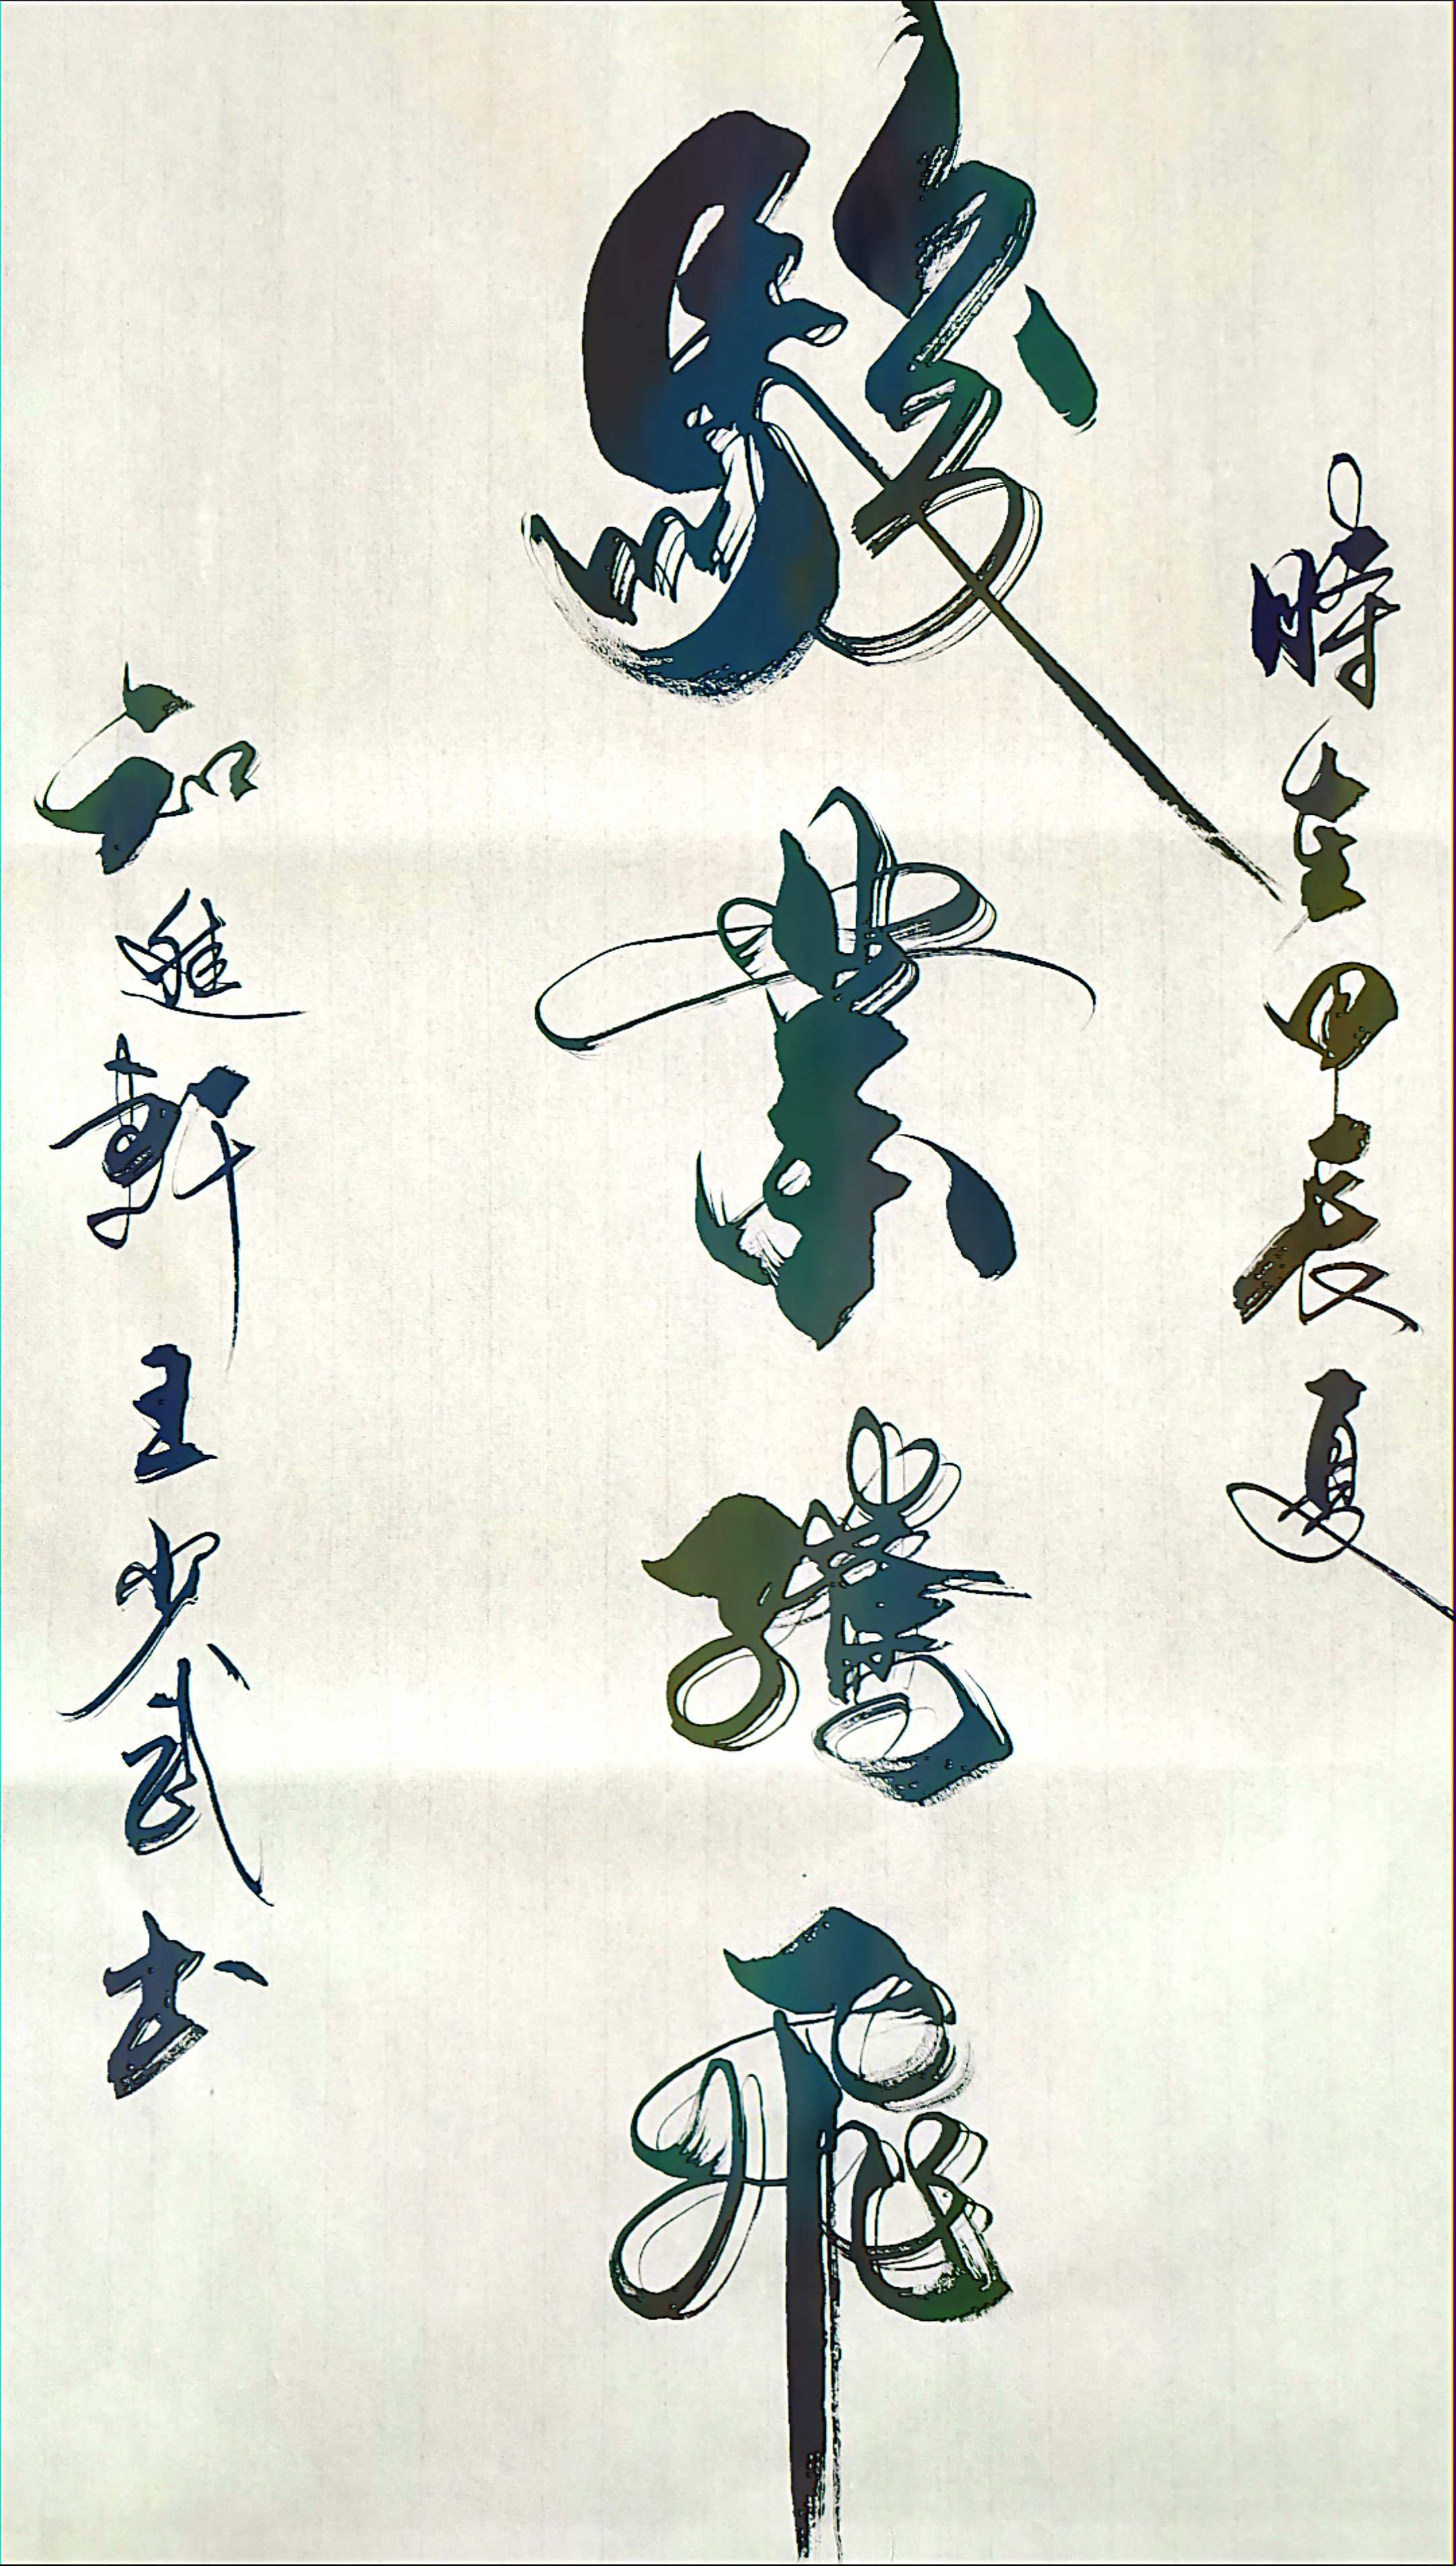 時在甲辰夏
駿業騰飛
知進軒主少武书